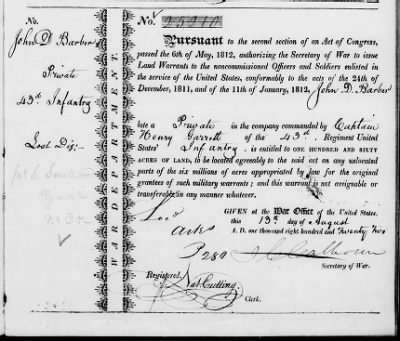 No. 25211
John D. Barber
Private
43d. Infantry
Lost Dis:
WAR DEPARTMENT.
Pursuant to the second section of an Act of Congress,
passed the 6th of May, 1812, authorizing the Secretary of War to issue
Land Warrants to the noncommissioned Officers and Soldiers enlisted in
the service of the United States, conformably to the acts of the 24th of
December, 1811, and of the 11th of January, 1812, John D. Barber
late a Private in the company commanded by Captain
Henry Garrett of the 43d. Regiment United
States' Infantry, is entitled to ONE HUNDRED AND SIXTY
ACRES OF LAND, to be located agreeably to the said act on any unlocated
parts of the six millions of acres appropriated by law for the original
grantees of such military warrants; and this warrant is not assignable or
transferable in any manner whatever.
GIVEN at the War Office of the United States,
this 13th day of August
A. D. one thousand eight hundred and twenty two
P 280
J C Calhoun
Secretary of War.
Registered, Nat. Cutting
Clerk.